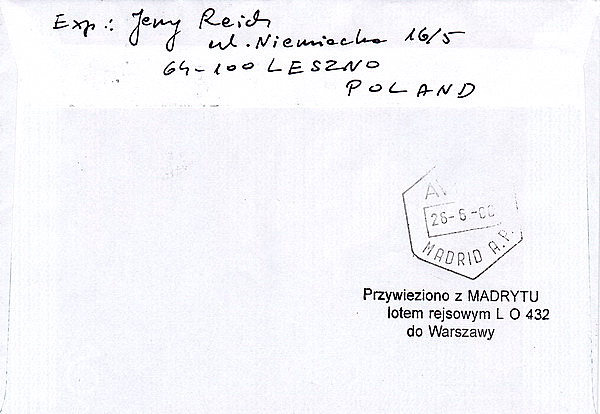 Exp.: Jerzy Reich
ul. Niemiecka 16/5
64-100 LESZNO
POLAND
26-6-00
MADRID A.P.
Przywieziono z MADRYTU
lotem rejsowym L O 432
do Warszawy